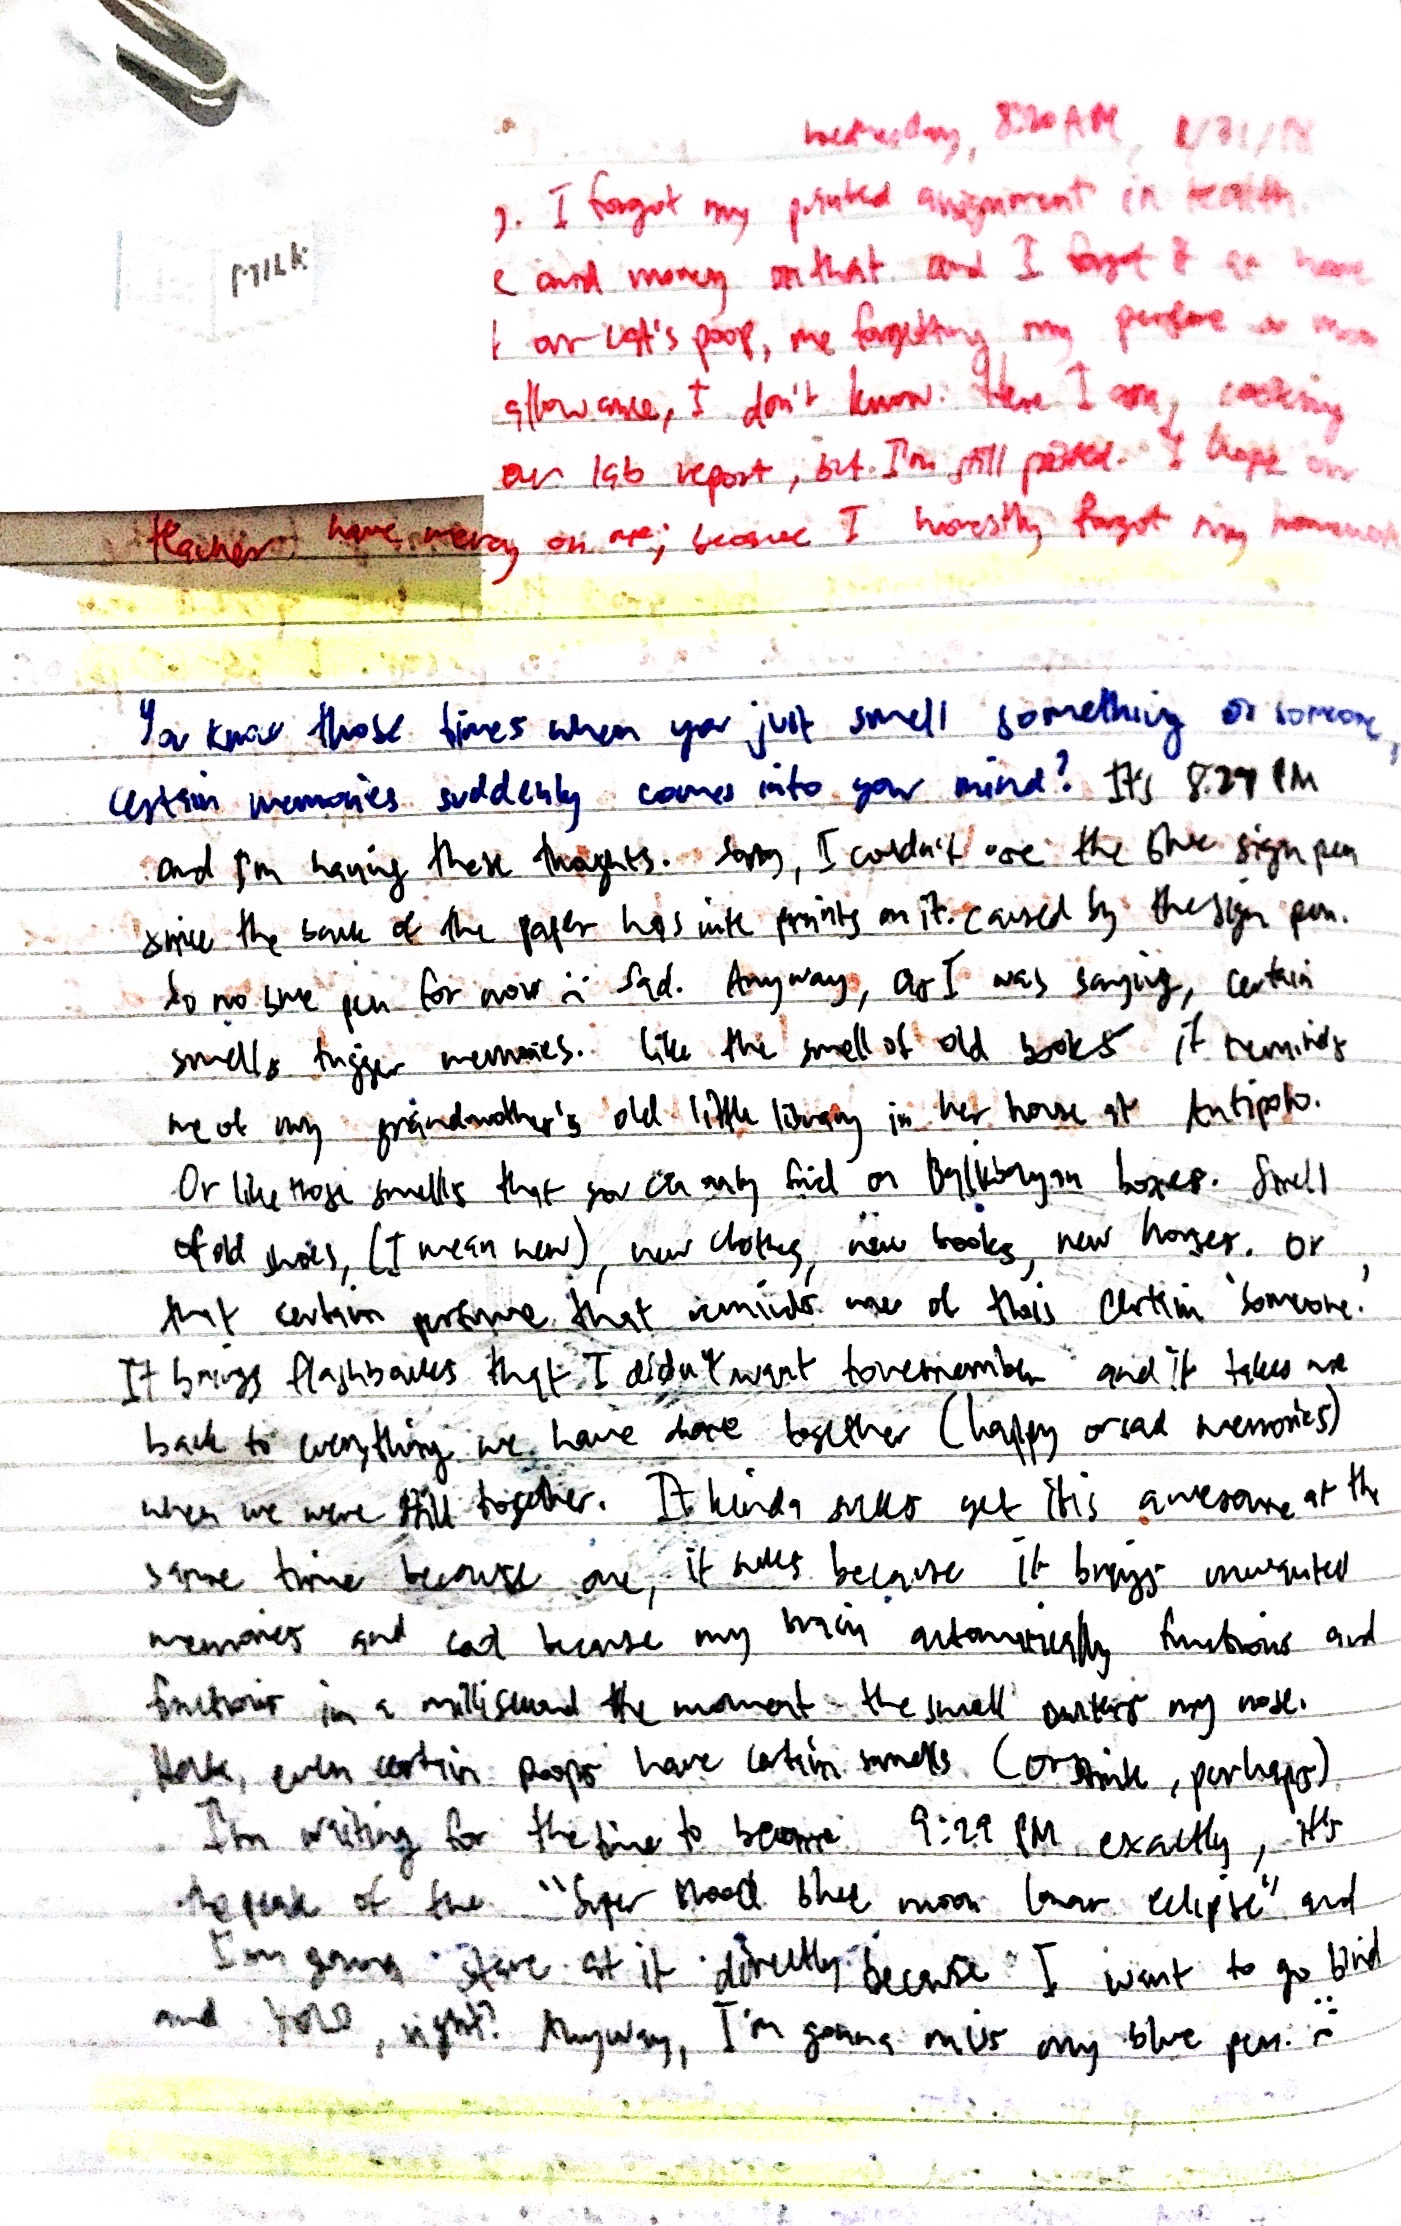 MILK
Wednesday, 8:20 AM, 1/31/18
. I forgot my printed assignment in health.
and money on that and I forget it at home
our cat's poop, me forgetting my perfume
allowance, I don't know. Here I am,
our lab report, but I'm still pissed. I hope our
teacher have mercy on me; because I honestly forgot my homework
You know those times when you just smell something or someone,
certain memories suddenly comes into your mind? It's 8:29 PM
and I'm having these thoughts. Sorry, I couldn't use the blue sign pen
since the back of the paper has ink prints on it. caused by the sign pen.
So no blue pen for now :( Sad. Anyway, as I was saying, certain
smells trigger memories. Like the smell of old books it reminds
me of my grandmother's old little library in her house at Antipolo.
Or like those smells that you can only find on Balikbayan boxes. Smell
of old shoes, (I mean new), new clothes, new books, new houses. Or
that certain perfume that reminds me of this certain 'someone.'
It brings flashbacks that I didn't want to remember and it takes me
back to everything we have done together (happy or sad memories)
when we were still together. It kinda sucks yet it is awesome at the
same time because one, it sucks because it brings unwanted
memories and cool because my brain automatically functions and
functions in a millisecond the moment the smell enters my nose.
Heck, even certain poops have certain smells (or stink, perhaps)
I'm waiting for the time to become 9:29 PM exactly, it's
the peak of the "Super blood blue moon lunar eclipse" and
I'm gonna stare at it directly because I want to go blind
and YOLO, right? Anyway, I'm gonna miss my blue pen. :(